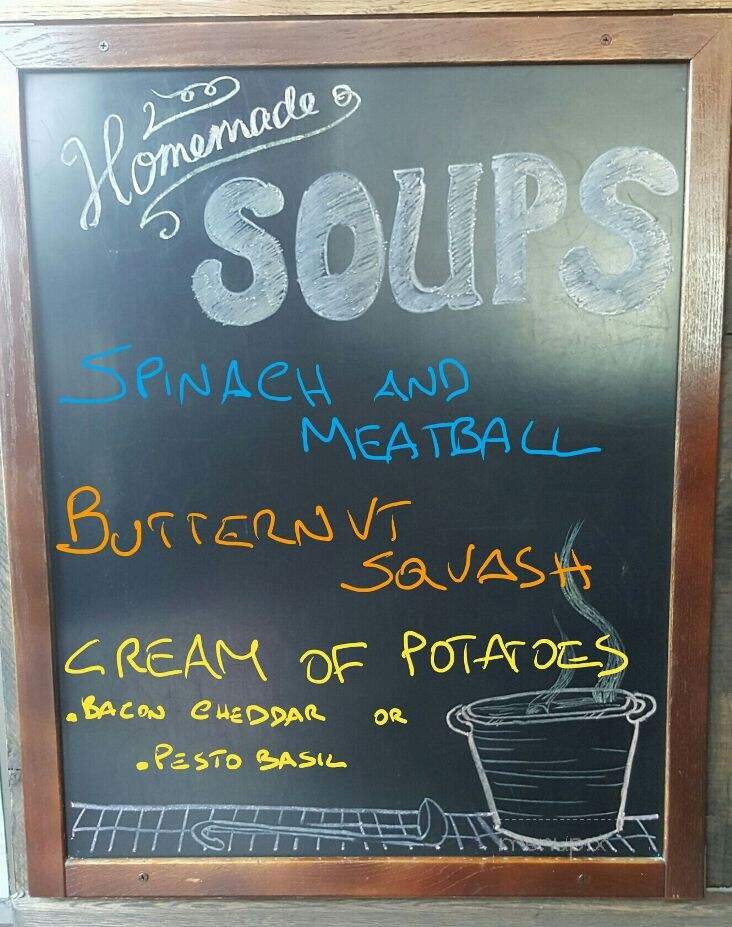 Homemade
SOUPS
SPINACH AND
MEATBALL
BUTTERNUT
SQUASH
CREAM OF POTATOES
. BACON CHEDDAR OR
. PESTO BASIL
menupix